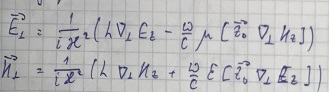 E⃗⊥ = 1/(iæ²) (h ∇⊥ E_z − ω/c μ [z⃗₀ ∇⊥ H_z])
H⃗⊥ = 1/(iæ²) (h ∇⊥ H_z + ω/c ε [z⃗₀ ∇⊥ E_z])